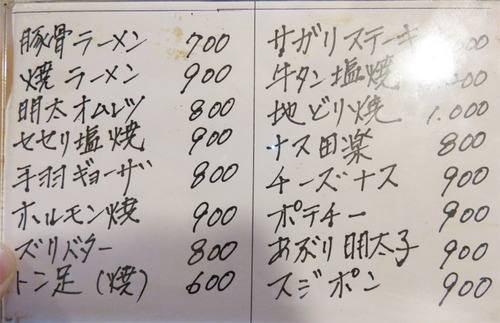 豚骨ラーメン 700
焼ラーメン 900
明太オムレツ 800
セセリ塩焼 900
手羽ギョーザ 800
ホルモン焼 900
ズリバター 800
トン足(焼) 600
サガリステーキ
牛タン塩焼
地どり焼 1.000
ナス田楽 800
チーズナス 900
ポテチー 900
あぶり明太子 900
スジポン 900